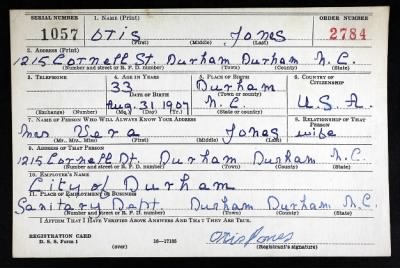 SERIAL NUMBER 1. NAME (Print) ORDER NUMBER
1057 Otis Jones 2784
(First) (Middle) (Last)
2. ADDRESS (Print)
1215 Cornell St. Durham Durham N.C.
(Number and street or R. F. D. number) (Town) (County) (State)
3. TELEPHONE 4. AGE IN YEARS 5. PLACE OF BIRTH 6. COUNTRY OF CITIZENSHIP
33 Durham
DATE OF BIRTH (Town or county)
Aug. 31 1907 N.C. U.S.A.
(Exchange) (Number) (Mo.) (Day) (Yr.) (State or country)
7. NAME OF PERSON WHO WILL ALWAYS KNOW YOUR ADDRESS 8. RELATIONSHIP OF THAT PERSON
Mrs Vera Jones wife
(Mr., Mrs., Miss) (First) (Middle) (Last)
9. ADDRESS OF THAT PERSON
1215 Cornell St. Durham Durham N.C.
(Number and street or R. F. D. number) (Town) (County) (State)
10. EMPLOYER'S NAME
City of Durham
11. PLACE OF EMPLOYMENT OR BUSINESS
Sanitary Dept. Durham Durham N.C.
(Number and street or R. F. D. number) (Town) (County) (State)
I AFFIRM THAT I HAVE VERIFIED ABOVE ANSWERS AND THAT THEY ARE TRUE.
REGISTRATION CARD
D. S. S. Form 1 (over) 16-17105 Otis Jones
(Registrant's signature)